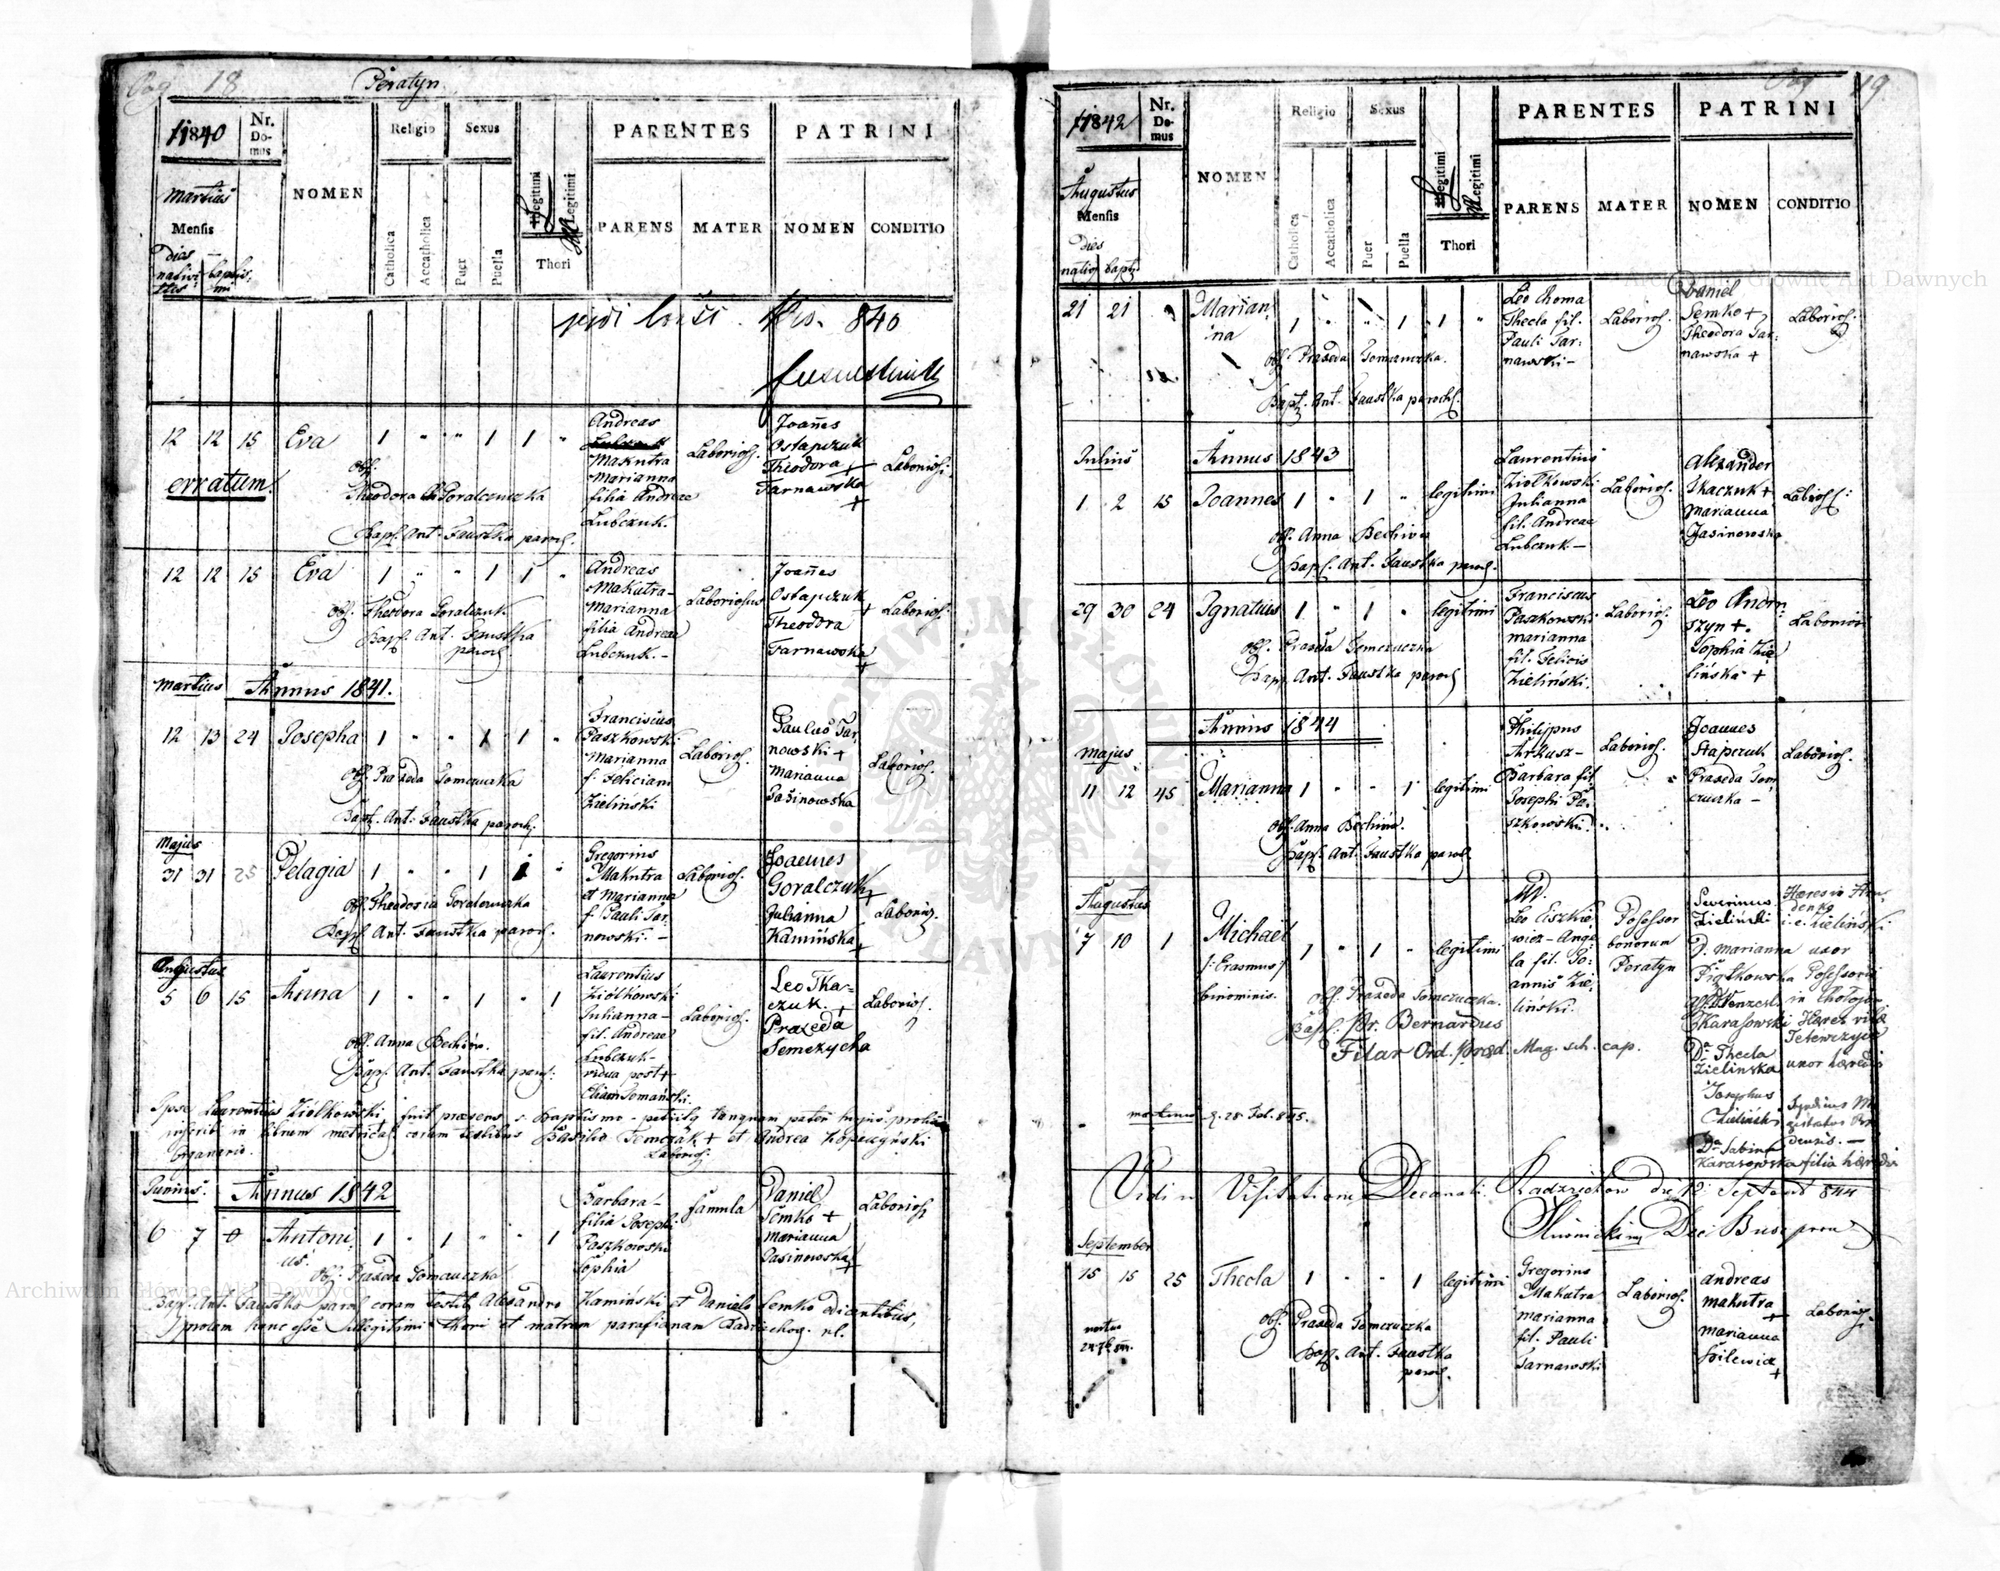 Pag 18 Peratyn
1840
Nr. Domus
NOMEN
Religio
Sexus
PARENTES
PATRINI
Martius
Mensis
Catholica
Accatholica
Puer
Puella
Illegitimi
Legitimi
Thori
PARENS
MATER
NOMEN
CONDITIO
Dies
nativitatis
baptismi
840
12 12 15 Eva 1 " " 1 1 "
Andreas
Makutra
Marianna
filia Andreae
Lubczuk.
Laborios.
Joanes
Ostapczuk
Theodora +
Tarnawska
+
Laborios:
erratum.
Obs.
Theodora Goralczuczka
Bapt. Ant. Faustka paroch.
12 12 15 Eva 1 " " 1 1 "
Andreas
Makutra-
Marianna
filia Andreae
Lubczuk.-
Laboriosus
Joanes
Ostapczuk
+
Theodora
Tarnawska
+
Laborios.
Obs. Theodora Goralczuk
Bapt. Ant. Faustka
paroch.
Martius Annus 1841.
12 13 24 Josepha 1 " " 1 1 "
Franciscus
Paszkowski
Marianna
f. Feliciani
Zieliński
Laborios.
Paulus Tar-
nowski +
Marianna
Jasinowska
Laborios.
Obs. Praxeda Tomczuczka
Bapt. Ant. Faustka paroch.
Majus
31 31 25 Pelagia 1 " " 1 1 "
Gregorius
Makutra
et Marianna
f. Pauli Tar-
nowski. -
Laborios.
Joannes
Goralczuk
+
Julianna
Kamińska
+
Laborios.
Obs. Theodosia Goralczuczka
Bapt. Ant. Faustka paroch.
Augustus
5 6 15 Anna 1 " " 1 " 1
Laurentius
Ziółkowski
Julianna-
fil. Andreae
Lubczuk-
vidua post +
Eliam Semański.
Laborios.
Leo Tka-
czuk. +
Praxeda
Semczycha
Laborios.
Obs. Anna Bechiva.
Bapt. Ant. Faustka paroch:
Ipse Laurentius Ziólkowski fuit praesens s. Baptismo - petiitq tanquam pater hujus prolis
inscribi in librum metrical coram testibus Basilio Temczak + et Andrea Kopczyński
organario. Laborios.
Junius. Annus 1842
6 7 0 Antoni
us. 1 " 1 " " 1
Barbara-
filia Josephi
Paszkowski
Sophia
famula
Daniel
Semko +
Marianna
Jasinowska
+
Laborios.
Obs. Praxeda Tomczuczka
Bapt. Ant. Faustka paroch coram testib. Alexandro Kamiński et Daniele Semko dicentibus,
prolem hanc esse Illegitimi thori et matrem parafianam Radziechov. nl.
Pag 19
1842
Nr. Domus
NOMEN
Religio
Sexus
PARENTES
PATRINI
Augustus
Mensis
Catholica
Accatholica
Puer
Puella
Illegitimi
Legitimi
Thori
PARENS
MATER
NOMEN
CONDITIO
Dies
nativ bapti
21 21 Marian-
na 1 " " 1 1 "
Leo Choma
Thecla fil.
Pauli Tar-
nawski-
Laborios.
Daniel
Semko +
Theodora Tar-
nawska +
Laborios.
Obs. Praxeda Tomczuczka.
Bapt. Ant. Faustka paroch.
Julius Annus 1843
1 2 15 Joannes 1 " 1 " legitimi
Laurentius
Ziołkowski
Julianna
fil. Andreae
Lubczuk -
Laborios.
Alexander
Tkaczuk +
Marianna
Jasinowska
Laborios:
Obs. Anna Bechiva
Bapt. Ant. Faustka paroch.
29 30 24 Ignatius 1 " 1 " legitimi
Franciscus
Paszkowski
Marianna
fil. Felicis
Zieliński.
Laborios.
Leo Andru-
szyn +.
Sophia Zie-
lińska +
Laboriosi
Obs. Praxeda Tomczuczka
Bapt. Ant. Faustka paroch
Annus 1844
Majus
11 12 45 Marianna 1 " " 1 legitimi
Philippus
Arkusz-
Barbara fil
Josephi Pa-
szkowski.
Laborios.
Joannes
Stapczuk
Praxeda Tom-
czuczka -
Laborios.
Obs. Anna Bechiva.
Bapt. Ant. Faustka paroch
Augustus
7 10 1 Michael
/: Erasmus :/
binominis. 1 " 1 " legitimi
M.
Leo Ciszkie-
wicz - Ange-
la fil. Jo-
annis Zie-
liński.
Possessor
bonorum
Peratyn
Severinus
Zieliński
i.e. Zieliński
D. Marianna uxor
Piątkowska Possessoris
Karassowski Haeres villae
Da. Thecla
Zielinska uxor haeredis
Josephus
Zieliński
Da. Sabina
Karasowska filia haeredis
Obs. Praxeda Tomczuczka.
Bapt. Fr. Bernardus
Filar Ord. Praed. Mag. sch. cap.
mortuus d. 28 Feb. 845.
Vidi in Visitatione Decanali Radziechow die 12 Septemb 844
September
15 15 25 Thecla 1 " " 1 legitimi
Gregorius
Makutra
Marianna
fil. Pauli
Tarnawski
Laborios.
Andreas
Makutra
+
Marianna
Szilewicz
+
Laborios.
Obs. Praxeda Tomczuczka
Bapt. Ant. Faustka
paroch.
Archiwum Główne Akt Dawnych
Archiwum Główne Akt Dawnych
ARCHIWUM GŁÓWNE AKT DAWNYCH